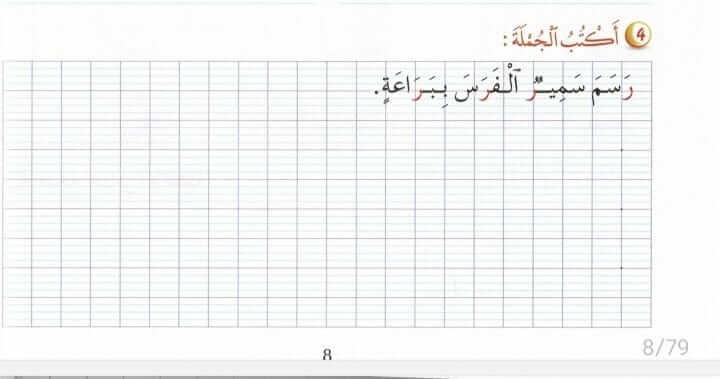 4 أَكْتُبُ ٱلْجُمْلَةَ :
رَسَمَ سَمِيـرٌ ٱلْـفَرَسَ بِـبَـرَاعَةٍ.
8
8/79